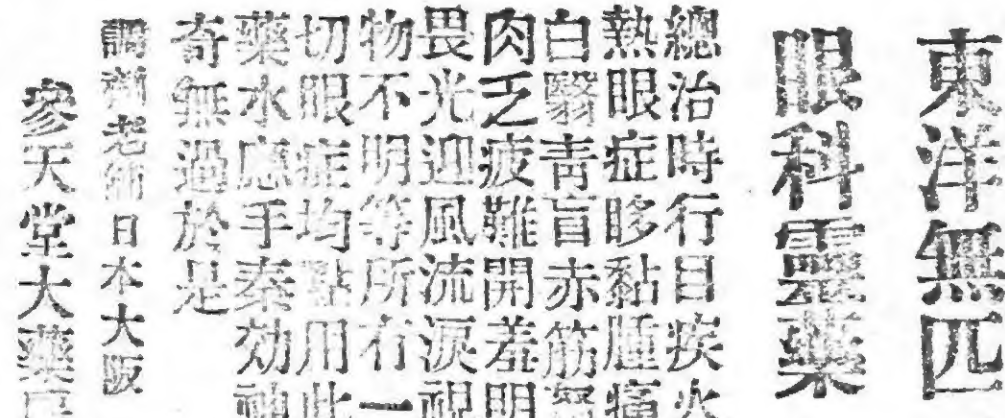 東洋無匹
眼科靈藥
總治時行目疾火
熱眼症眵黏腫痛
白翳青盲赤筋
肉乏疲難開羞明
畏光迎風流淚視
物不明等所有一
切眼症均點用此
藥水應手奏効神
奇無過於是
調劑老 日本大阪
參天堂大藥房